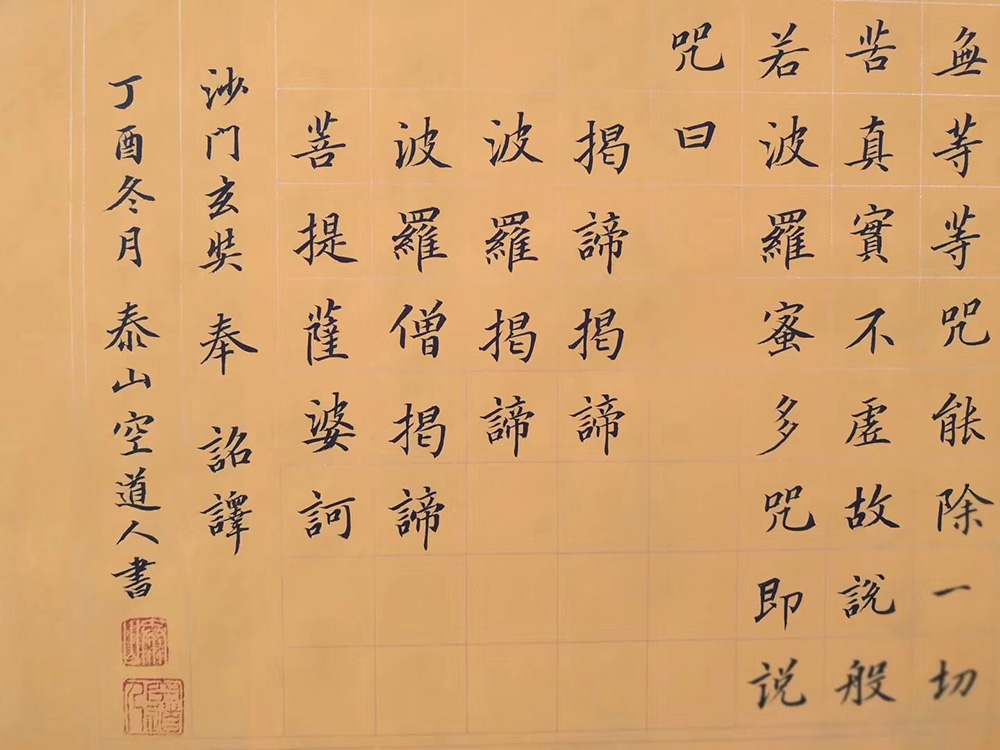 無等等咒能除一切
苦真實不虛故說般
若波羅蜜多咒即說
咒曰
揭諦揭諦
波羅揭諦
波羅僧揭諦
菩提薩婆訶
沙門玄奘奉 詔譯
丁酉冬月 泰山空道人書